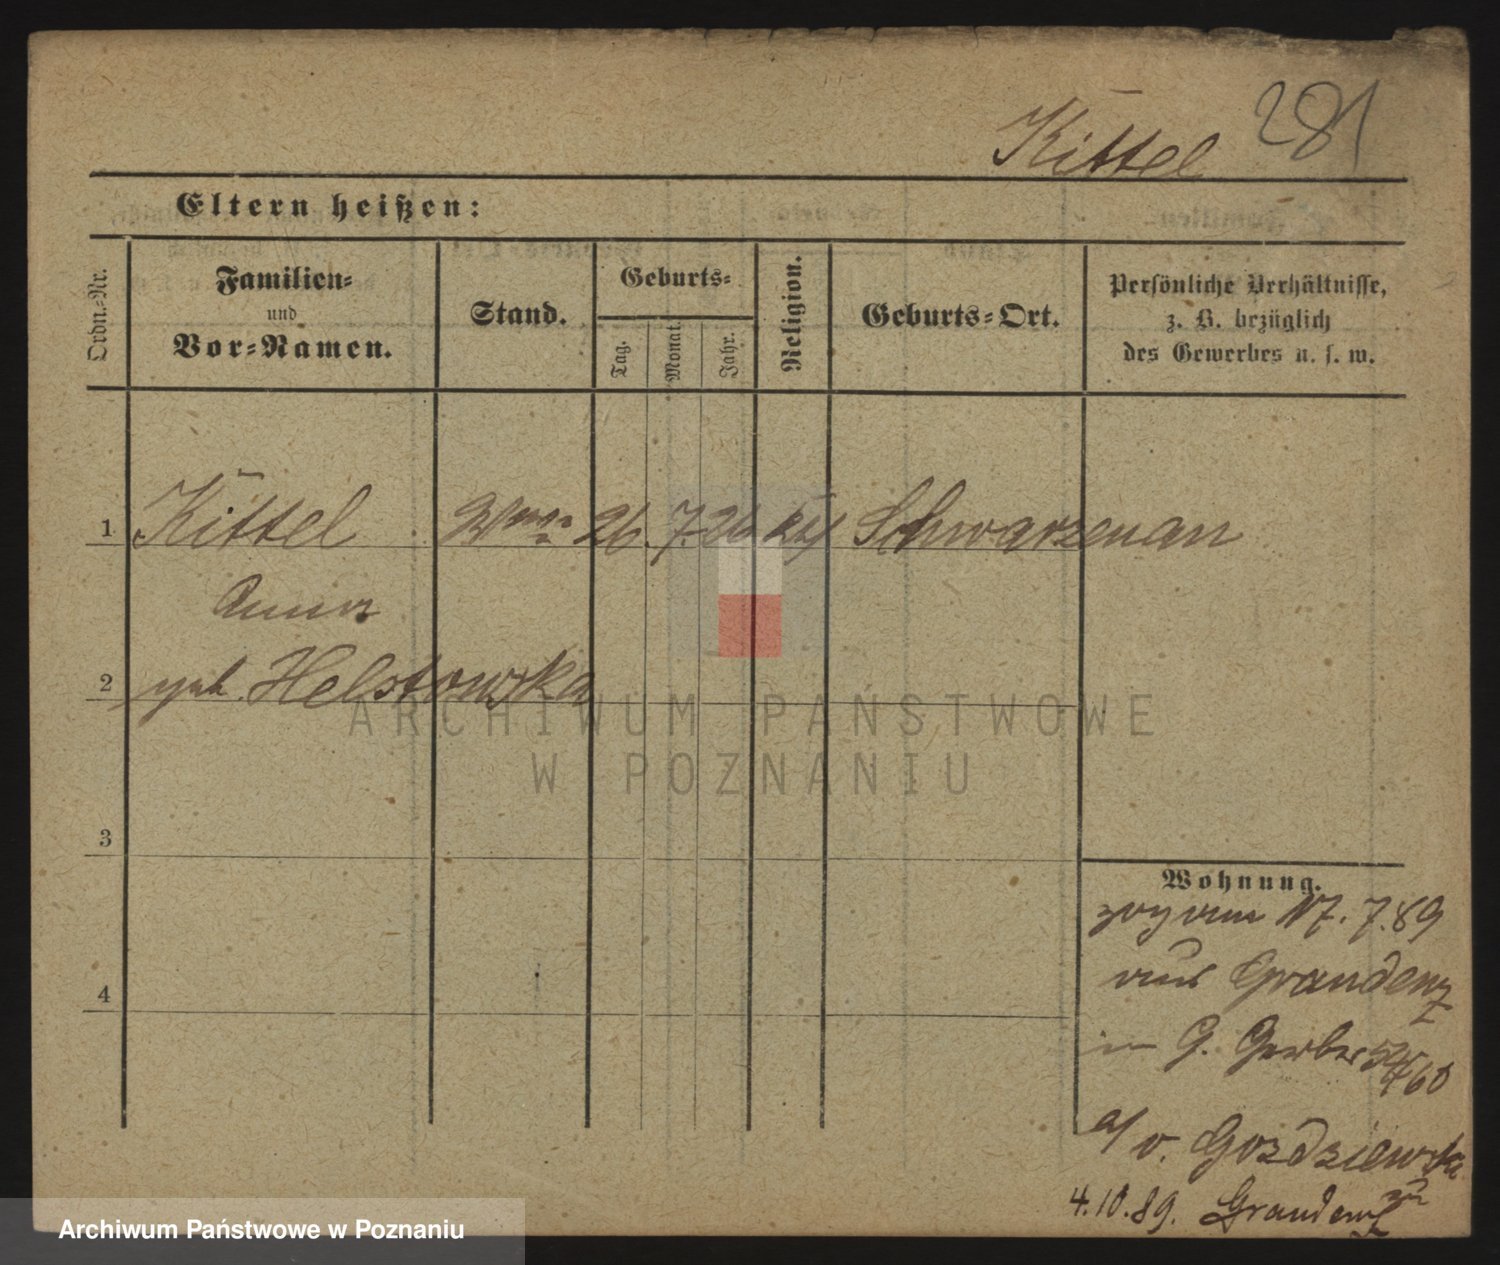 281
Kittel
Eltern heißen:
Ordn.-Nr.
Familien-
und
Vor-Namen.
Stand.
Geburts-
Tag.
Monat.
Jahr.
Religion.
Geburts-Ort.
Persönliche Verhältnisse,
z. B. bezüglich
des Gewerbes u. s. w.
1 Kittel 26. 7. 26 Schwarzenau
Anna
2 geb. Helstowska
3
4
Wohnung.
zog am 17. 7. 89
aus Graudenz
in G. Gerber
v. Gozdziewska
4.10.89. Graudenz
ARCHIWUM PAŃSTWOWE
W POZNANIU
Archiwum Państwowe w Poznaniu